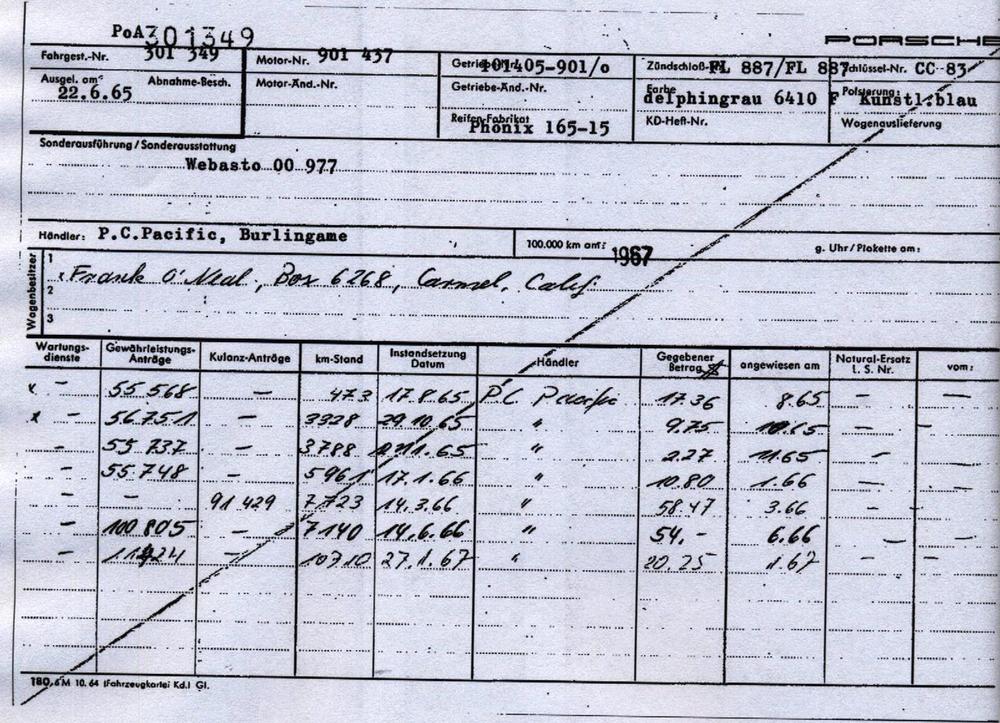 PoA 301349
PORSCHE
Fahrgest.-Nr. 301 349 Motor-Nr. 901 437 101405-901/o Zündschloß-Nr. FL 887/FL 887 Schlüssel-Nr. CC 83
Ausgel. am: 22.6.65 Abnahme-Besch. Motor-Änd.-Nr. Getriebe-Änd.-Nr. Farbe delphingrau 6410 F Polsterung: Kunstl.blau
Reifen-Fabrikat Phönix 165-15 KD-Heft-Nr. Wagenauslieferung
Sonderausführung/Sonderausstattung
Webasto 00 977
Händler: P.C.Pacific, Burlingame 100.000 km am: 1967 g. Uhr/Plakette am:
Wagenbesitzer
1 Frank O'Neal, Box 6268, Carmel, Calif.
2
3
Wartungs-dienste Gewährleistungs-Anträge Kulanz-Anträge km-Stand Instandsetzung Datum Händler Gegebener Betrag $ angewiesen am Natural-Ersatz L. S. Nr. vom:
x - 55 568 - 473 17.8.65 P.C. Pacific 17.36 8.65 - -
x - 56 751 - 3328 29.10.65 " 9.75 10.65 - -
- 55 737 - 3788 65 " 2.27 11.65 - -
- 55 748 - 5961 17.1.66 " 10.80 1.66 - -
- - 91 429 7723 14.3.66 " 58.47 3.66 - -
- 100 805 - 7140 14.6.66 " 54.- 6.66 - -
- - 10710 27.1.67 " 20.25 1.67 - -
180.6M 10.64 (Fahrzeugkartei Kd.) Gl.